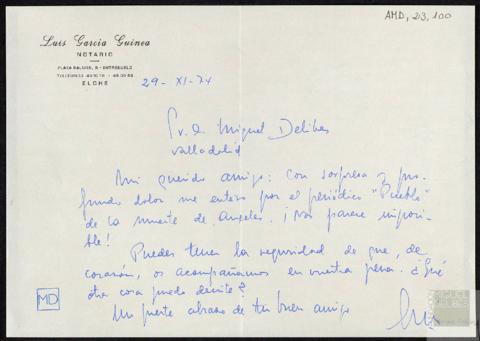 AMD, 213, 100
Luis García Guinea
NOTARIO
PLAZA BALUDE, 6 - ENTRESUELO
TELEFONOS
ELCHE
29-XI-74
Sr. D. Miguel Delibes
Valladolid
Mi querido amigo: con sorpresa y pro-
fundo dolor me entero por el periódico "Pueblo"
de la muerte de Angeles. ¡Nos parece imposi-
ble!
Puedes tener la seguridad de que, de
corazón, os acompañamos en vuestra pena. ¿Qué
otra cosa puedo decirte?
Un fuerte abrazo de tu buen amigo
Luis
MD